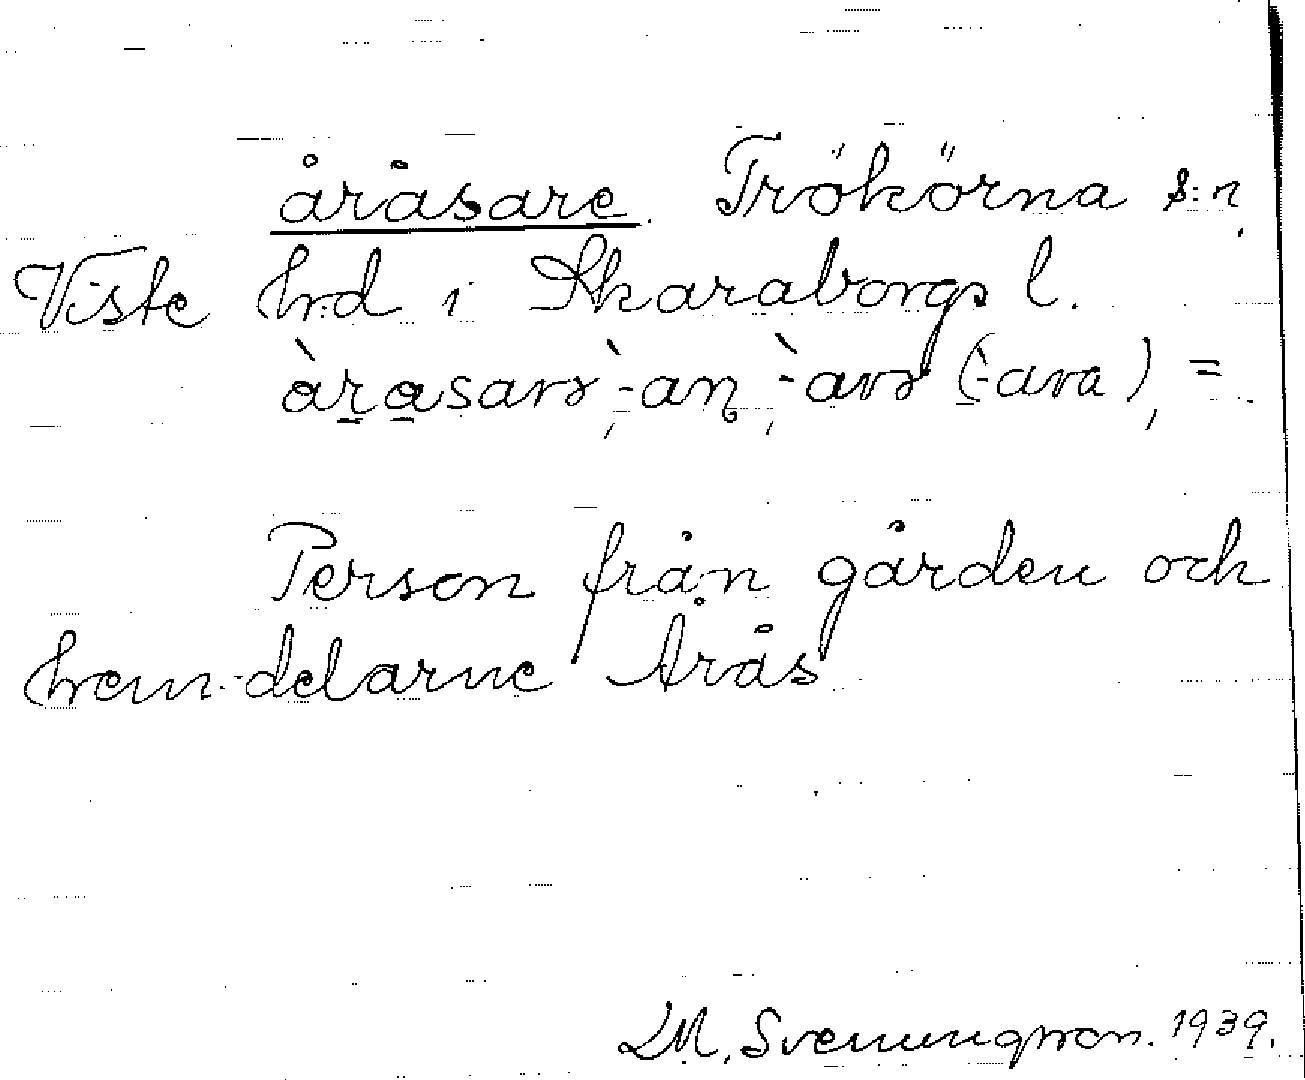 åråsare. Trökörna s:n,
Viste hrd i Skaraborgs l.
àrasarɘ, -an, -avɘ (-ara), =
Person från gården och
hem.-delarne Årås
L M. Svenungsson. 1939.